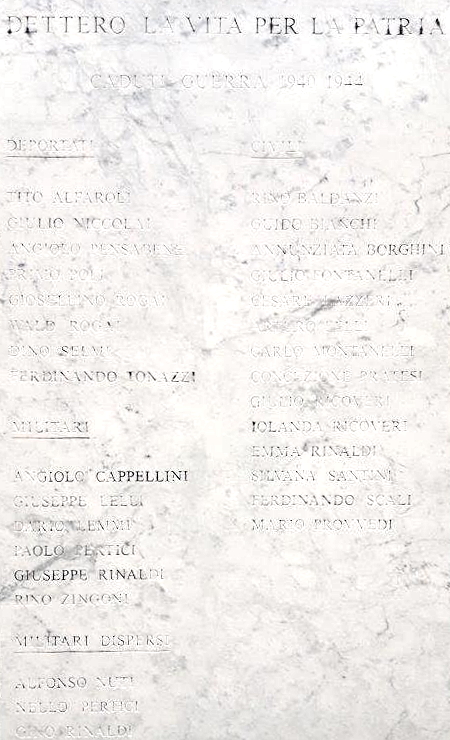 DETTERO LA VITA PER LA PATRIA
CADUTI GUERRA 1940 1944
DEPORTATI
TITO ALFAROLI
GIULIO NICCOLAI
ANGIOLO PENSABENE
PRIMO POLI
GIOSELLINO ROGAI
WALD ROGAI
DINO SELMI
FERDINANDO IONAZZI
MILITARI
ANGIOLO CAPPELLINI
GIUSEPPE LELLI
DARIO LEMMI
PAOLO PERTICI
GIUSEPPE RINALDI
RINO ZINGONI
MILITARI DISPERSI
ALFONSO NUTI
NELLO PERTICI
GINO RINALDI
CIVILI
RINO BALDANZI
GUIDO BIANCHI
ANNUNZIATA BORGHINI
GIULIO FONTANELLI
CESARE LAZZERI
LELLI
CARLO MONTANELLI
CONCEZIONE PRATESI
GIULIO RICOVERI
IOLANDA RICOVERI
EMMA RINALDI
SILVANA SANTINI
FERDINANDO SCALI
MARIO PROVVEDI